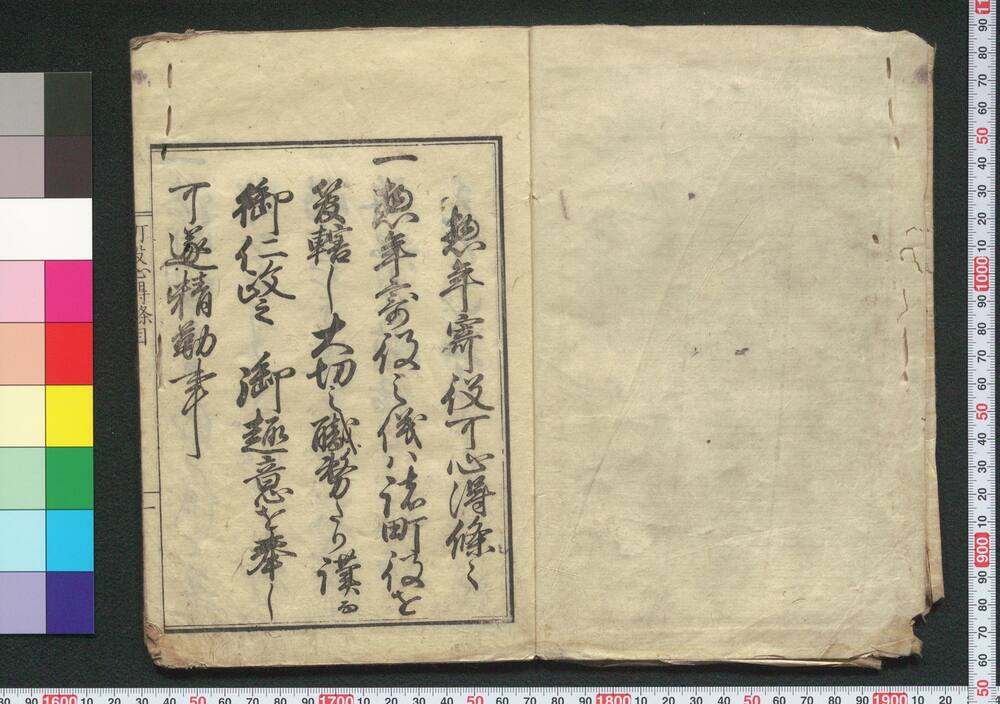 惣年寄役可心得條々
一惣年寄役之儀ハ諸町役を
管轄し大切之職務たり謹而
御仁政之　御趣意を奉し
可遂精勤事
町役心得條目
一